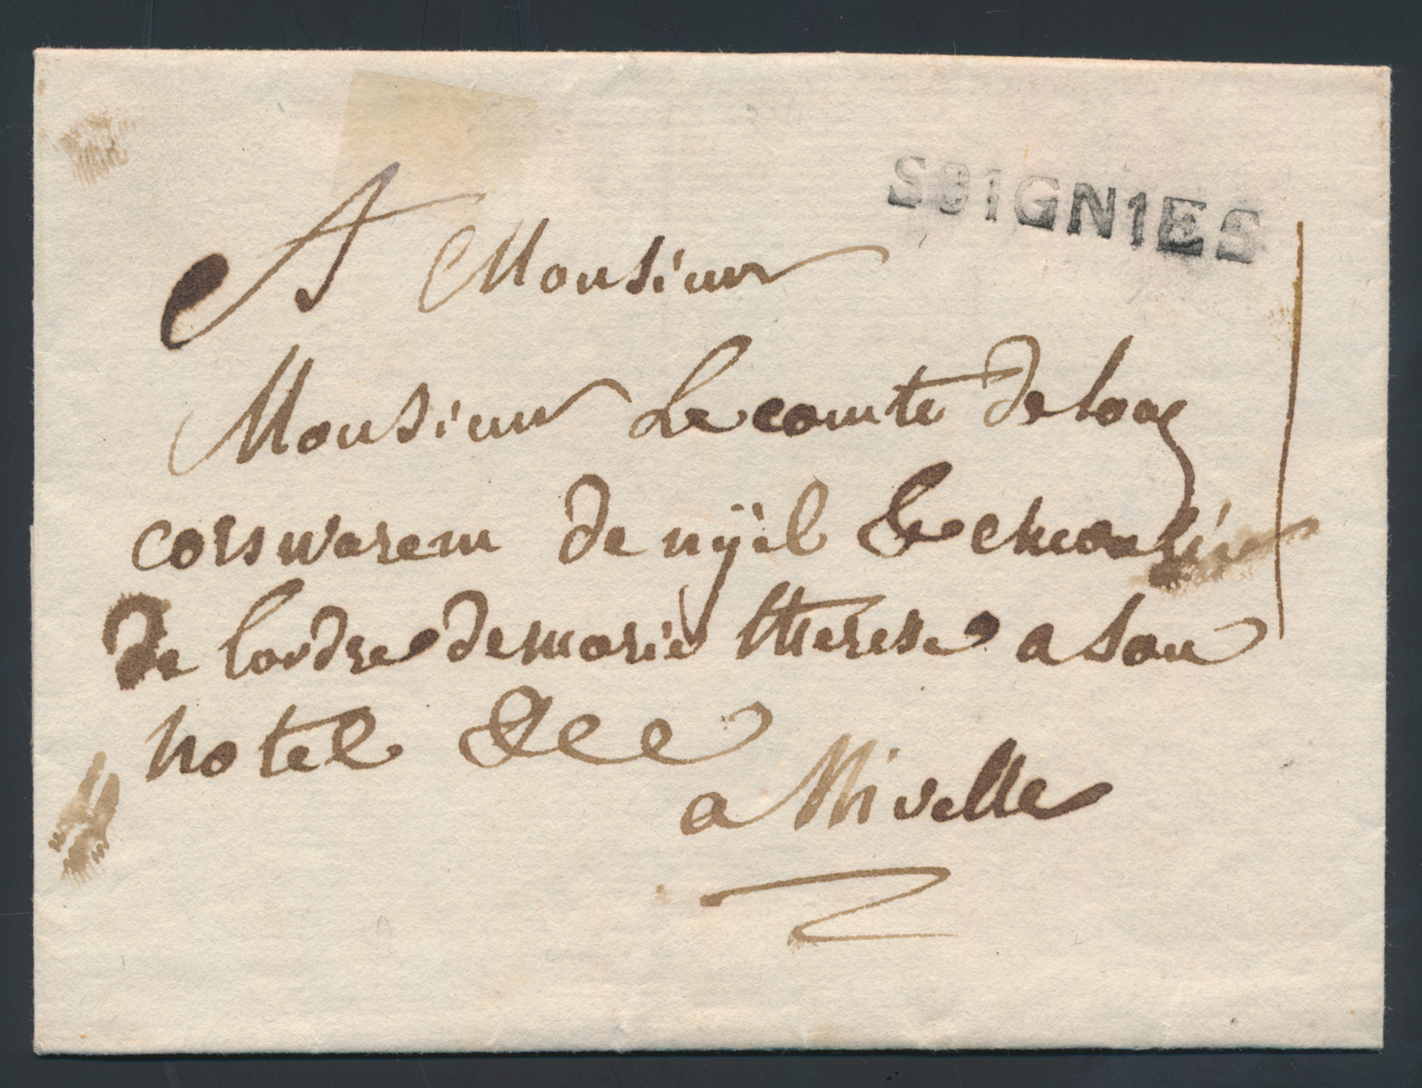 SOIGNIES
A Monsieur
Monsieur Le comte de looz
corswarem de nÿel &
de lordre de marie therese a son
hotel &cc
a Nivelle